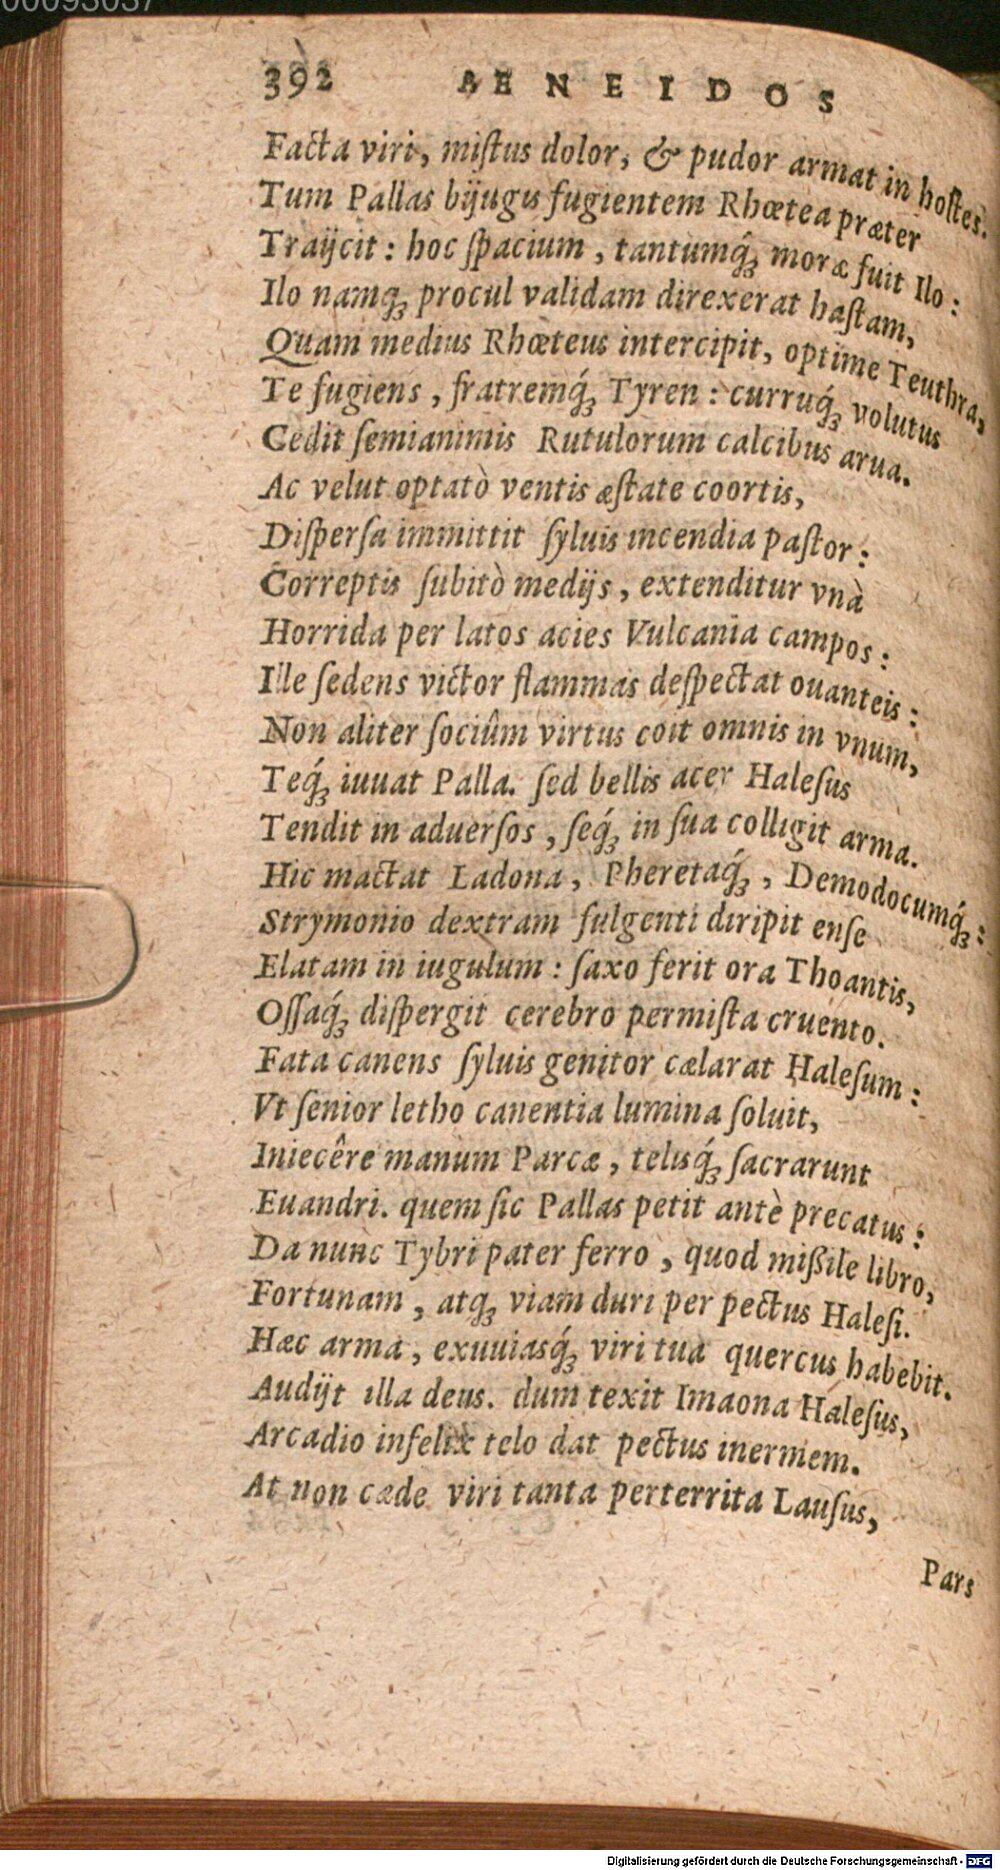 00093037
392 AENEIDOS
Facta viri, miſtus dolor, & pudor armat in hoſtes.
Tum Pallas bijugis fugientem Rhœtea præter
Traijcit: hoc ſpacium, tantumq́; moræ fuit Ilo:
Ilo namq; procul validam direxerat haſtam,
Quam medius Rhœteus intercipit, optime Teuthra,
Te fugiens, fratremq́; Tyren: curruq́; volutus
Cedit ſemianimis Rutulorum calcibus arua.
Ac velut optatò ventis æſtate coortis,
Diſperſa immittit ſyluis incendia paſtor:
Correptis ſubitò medijs, extenditur vnà
Horrida per latos acies Vulcania campos:
Ille ſedens victor flammas deſpectat ouanteis:
Non aliter ſociûm virtus coit omnis in vnum,
Teq́; iuuat Palla. ſed bellis acer Haleſus
Tendit in aduerſos, ſeq́; in ſua colligit arma.
Hic mactat Ladona, Pheretaq́;, Demodocumq́;:
Strymonio dextram fulgenti diripit enſe
Elatam in iugulum: ſaxo ferit ora Thoantis,
Oſſaq́; diſpergit cerebro permiſta cruento.
Fata canens ſyluis genitor cælarat Haleſum:
Vt ſenior letho canentia lumina ſoluit,
Iniecêre manum Parcæ, telisq́; ſacrarunt
Euandri. quem ſic Pallas petit antè precatus:
Da nunc Tybri pater ferro, quod mißile libro,
Fortunam, atq; viam duri per pectus Haleſi.
Hæc arma, exuuiasq́; viri tua quercus habebit.
Audijt illa deus. dum texit Imaona Haleſus,
Arcadio infelix telo dat pectus inermem.
At non cæde viri tanta perterrita Lauſus,
Pars
Digitalisierung gefördert durch die Deutsche Forschungsgemeinschaft - DFG